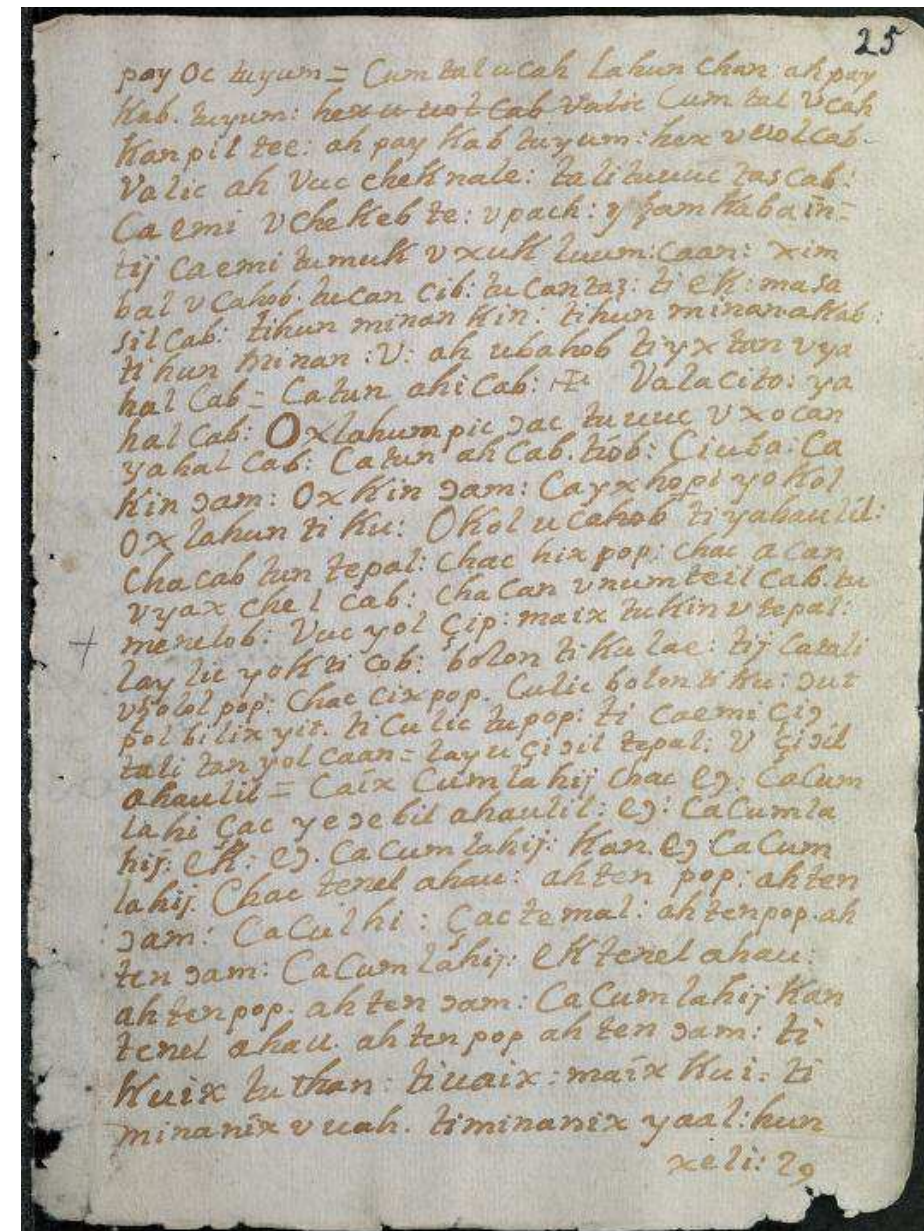 25
pay Oc tuyum = Cum tal u cah Lahun chan: ah pay
Kab. tuyum: hex u uol Cab Valic Cum tal V cah
Kan pil tee: ah pay Kab tuyum: hex v uol Cab.
Valic ah Vuc chek nale: tali tuuuc tas cab:
Ca emi v che Keb te: v pach: y ɔam Kaba in=
tij Ca emi tumuk v xuk luum: caan: xim
bal v Cahob. tu can cib: tu can tas: ti eK: masa
sil cab: tihun minan Kin: tihun minan aKab:
ti hun minan: V: ah ubahob ti yx tan v ya
hal Cab = Catun ahi Cab: Valacito: ya
hal Cab: Oxlahun pic ɔac tu uuc v xocan
yahal Cab: Catun ah Cab. tiob: Ciuba: Ca
Kin ɔam: Ox Kin ɔam: Ca yx hopi yoKol
Oxlahun ti Ku: OKol u cahob ti yahaulil:
Chacab tun tepal: Chac hix pop: Chac acan
v yax chel Cab: Chacan v num teil Cab. tu
menelob: Vuc yol çip: maix tu Kin v tepal:
+ lay lic yoK ti Cob: bolon ti Ku lae: tij Ca tali
pop: Chac cix pop. Culic bolon ti Ku: ɔut
pol bil ix yit. ti Culic tu pop: ti Ca emi çiɔ
tali tan yol Caan = lay u çiɔil tepal: V çiɔil
ahaulil = Caix Cumlahij Chac eɔ: Ca Cum
lahi çac ye ɔe bil ahaulil: eɔ: Ca Cumla
hij: eK: eɔ. Ca Cumlahij: Kan. eɔ Ca Cum
lahij Chac tenel ahau: ah ten pop: ah ten
ɔam: Ca Culhi: çac temal: ah ten pop. ah
ten ɔam: Ca Cumlahij: eK tenel ahau:
ah ten pop. ah ten ɔam: Ca Cumlahij Kan
tenel ahau. ah ten pop ah ten ɔam: ti
Kuix tu than: tiuaix: maix Kui: ti
minanix v uah. ti minanix yaal: hun
xeli: